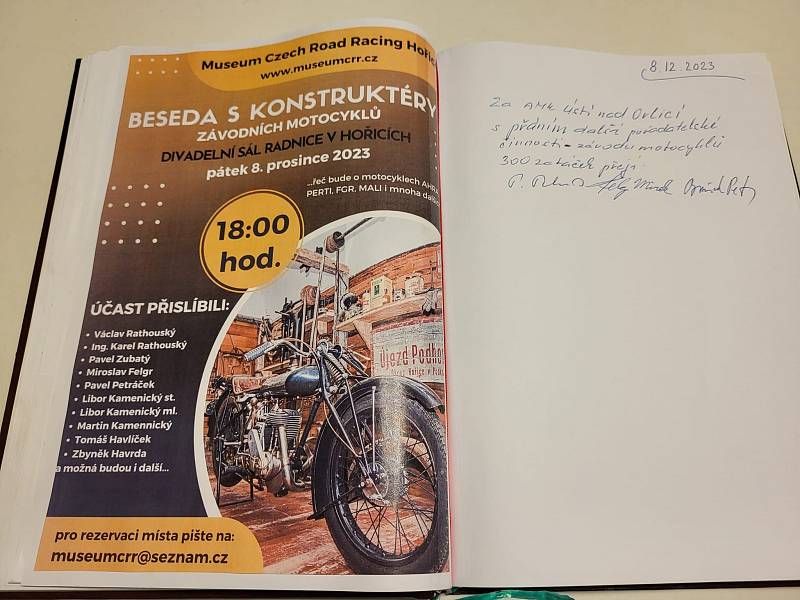 Museum Czech Road Racing Hořic
www.museumcrr.cz
BESEDA S KONSTRUKTÉRY
ZÁVODNÍCH MOTOCYKLŮ
DIVADELNÍ SÁL RADNICE V HOŘICÍCH
pátek 8. prosince 2023
...řeč bude o motocyklech AHRA,
PERTI, FGR, MALI i mnoha dalších
18:00
hod.
ÚČAST PŘISLÍBILI:
• Václav Rathouský
• Ing. Karel Rathouský
• Pavel Zubatý
• Miroslav Felgr
• Pavel Petráček
• Libor Kamenický st.
• Libor Kamenický ml.
• Martin Kamennický
• Tomáš Havlíček
• Zbyněk Havrda
a možná budou i další...
Újezd Podho
pro rezervaci místa pište na:
museumcrr@seznam.cz
8.12.2023
Za AMK Ústí nad Orlicí
s přáním další pořadatelské
činnosti - závodu motocyklů
300 zatáček přejí